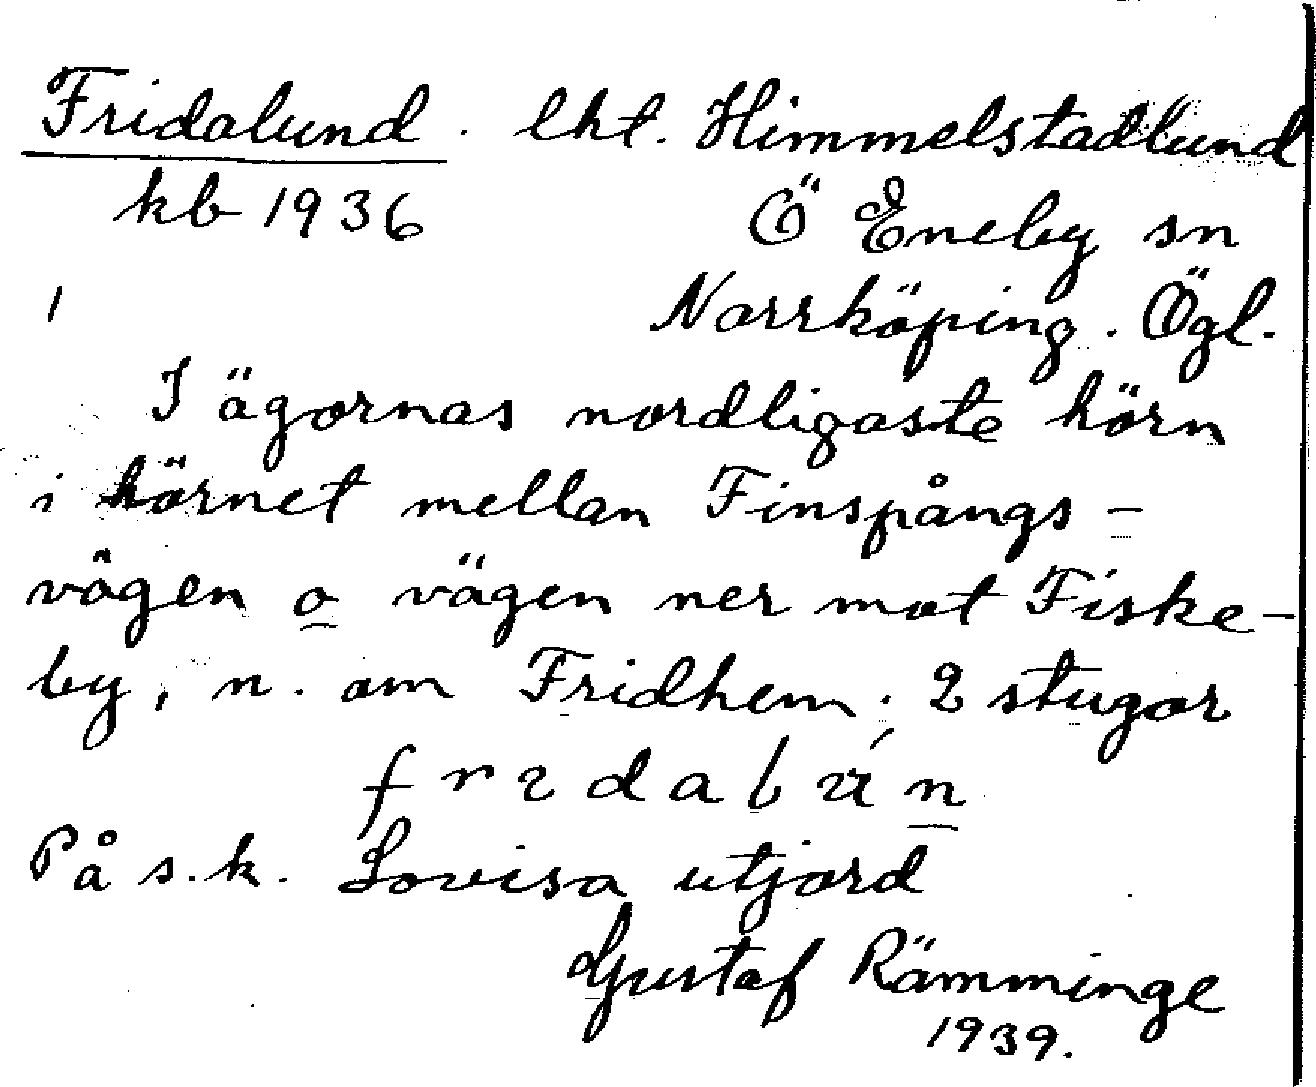 Fridalund. lht. Himmelstadlund
kb 1936 Ö Eneby sn
1 Norrköping. Ögl.
I ägornas nordligaste hörn
i hörnet mellan Finspångs-
vägen o vägen ner mot Fiske-
by, n. om Fridhem. 2 stugor
På s.k. Lovisa utjord
Gustaf Rämminge
1939.